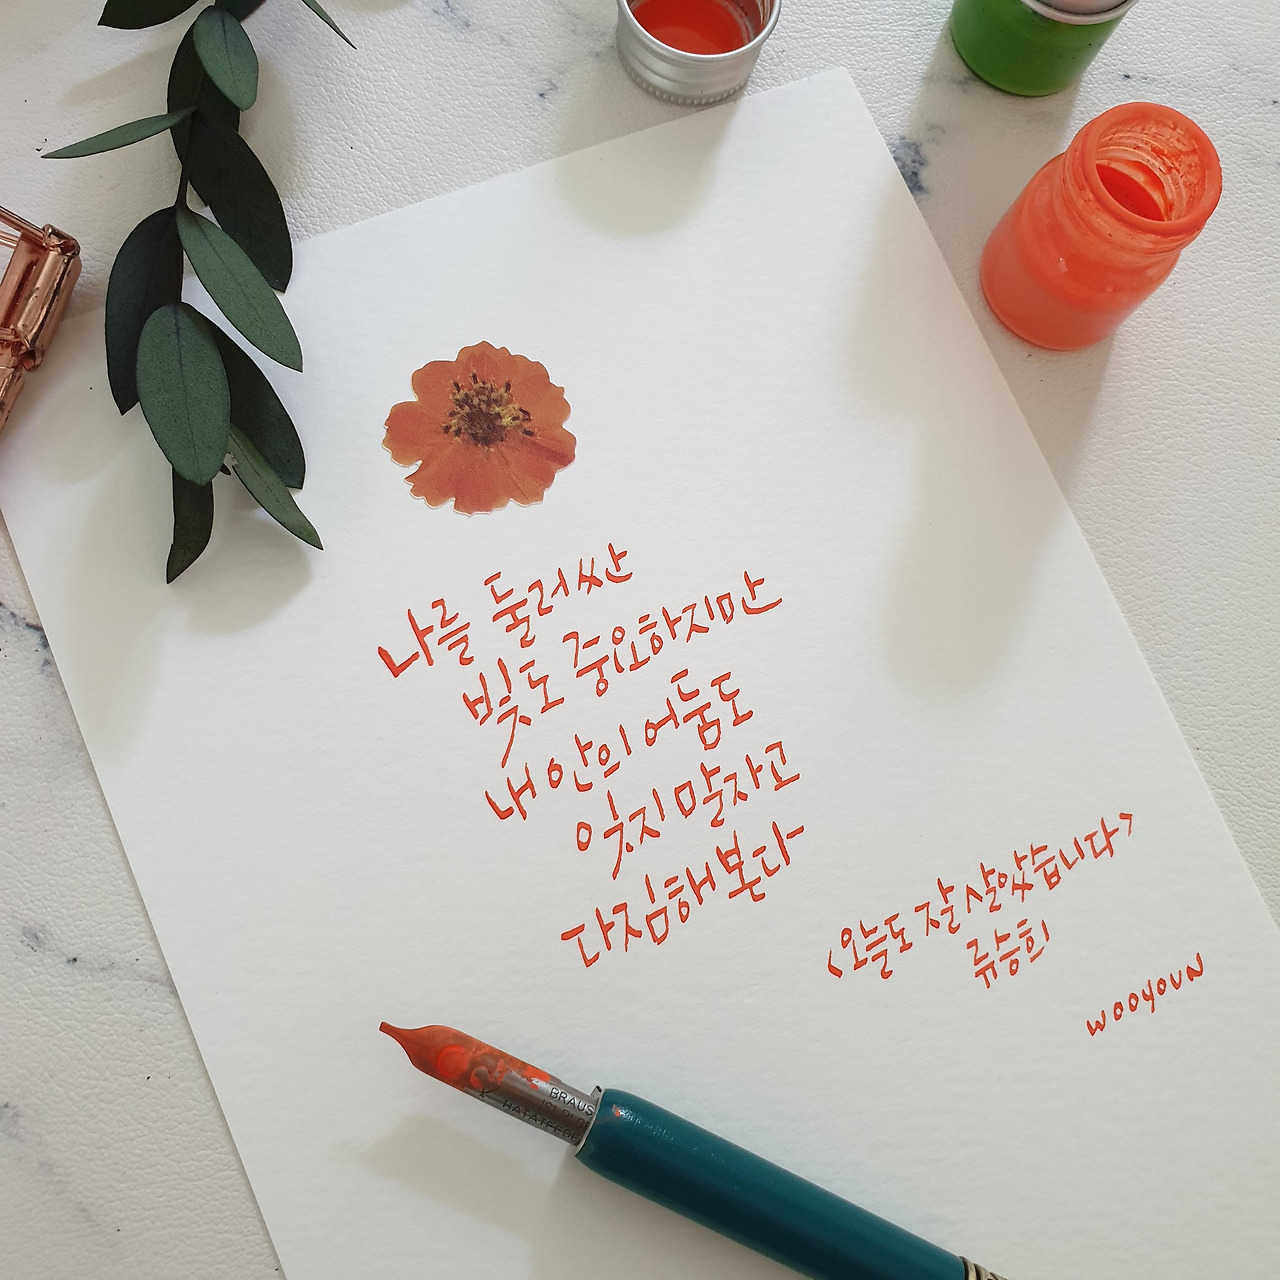 나를 둘러싼
빛도 중요하지만
내 안의 어둠도
잊지 말자고
다짐해 본다
<오늘도 잘 살았습니다>
류승희
wooyoun
BRAUS